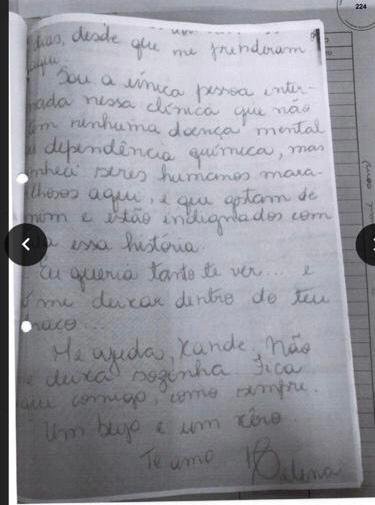 224
dias, desde que me prenderam
aqui.
Sou a única pessoa inter-
nada nessa clínica que não
tem nenhuma doença mental
dependência química, mas
conheci seres humanos mara-
vilhosos aqui, e que gostam de
mim e estão indignados com
toda essa história.
Eu queria tanto te ver... e
me deixar dentro do teu
braço...
Me ajuda, Xande. Não
me deixa sozinha. Fica
aqui comigo, como sempre.
Um beijo e um xêro.
Te amo